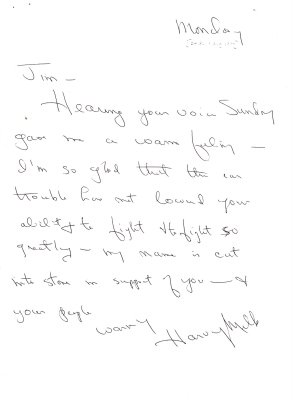 Monday
Jim —
Hearing your voice Sunday
gave me a warm feeling —
I'm so glad that the ear
trouble has not lowered your
ability to fight & to fight so
greatly — my name is cut
into stone in support of you — &
your people
Harvey Milk